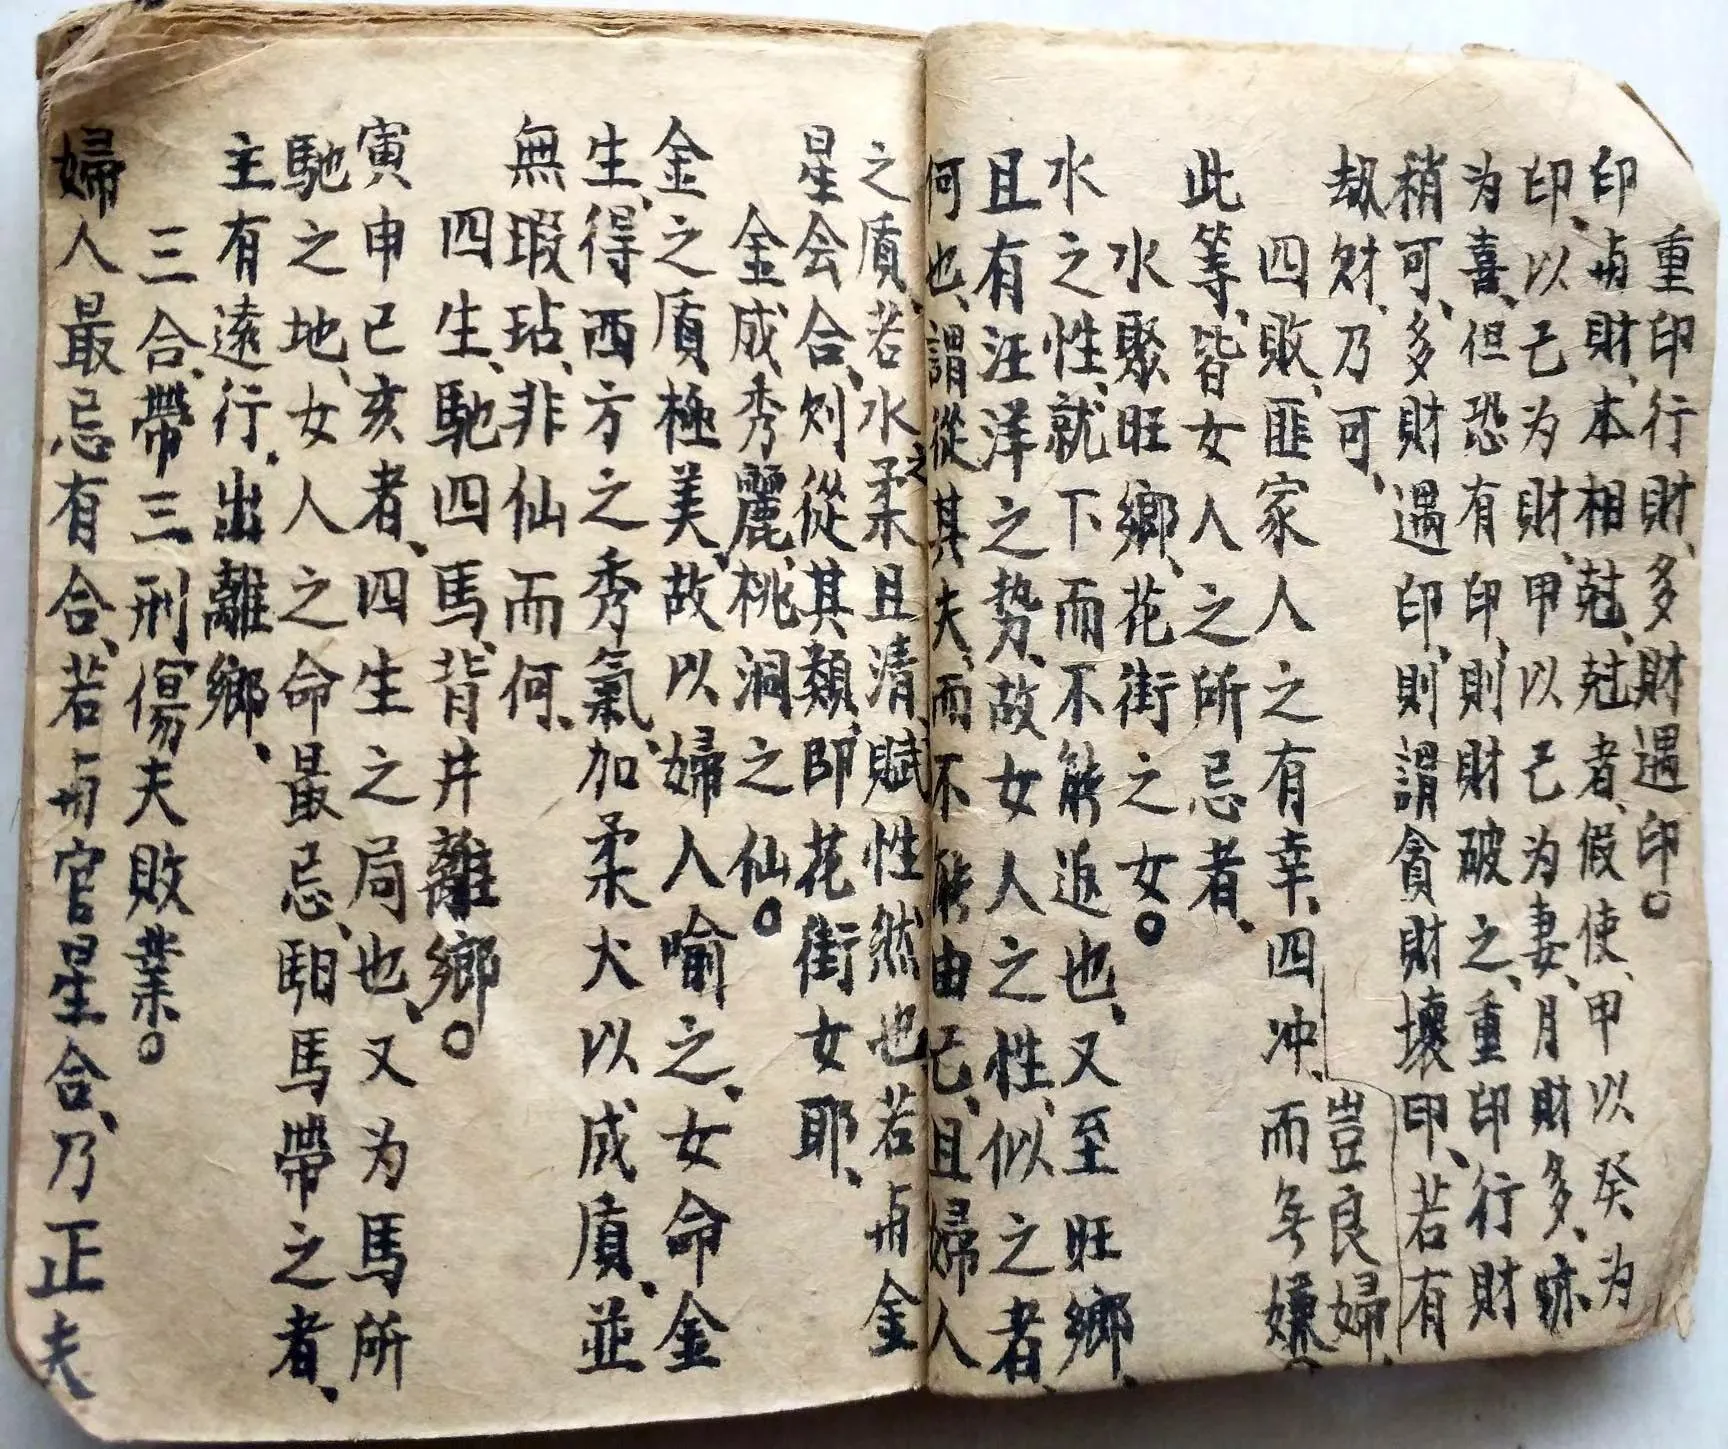 重印行財、多財遇印。
印、㒷財、本相尅、尅者、假使、甲以癸为
印、以己为財、甲以己为妻、月財多、
为喜、但恐有印、則財破之、重印行財
稍可、多財遇印、則謂貪財壞印、若有
劫財、乃可、豈良婦、
四敗、匪家人之有幸、四冲、而旡嫌
此等、皆女人之所忌者、
水聚旺鄉、花街之女。
水之性、就下而不能返也、又至旺鄉、
且有汪洋之势、故女人之性、似之者、
何也、謂從其夫、而不能由己、且婦人
之質、若水之柔且清、賦性然也若㒷金
星会合、則從其類、即花街女耶、
金成秀麗、桃洞之仙。
金之質、極美、故以婦人喻之、女命金
生、得西方之秀氣、加柔火以成質、並
無瑕玷、非仙而何、
四生、馳四馬、背井離鄉。
寅申巳亥者、四生之局也、又为馬所
馳之地、女人之命最忌、馹馬帶之者、
主有遠行、出離鄉、
三合、帶三刑、傷夫敗業。
婦人最忌有合、若㒷官星合、乃正夫